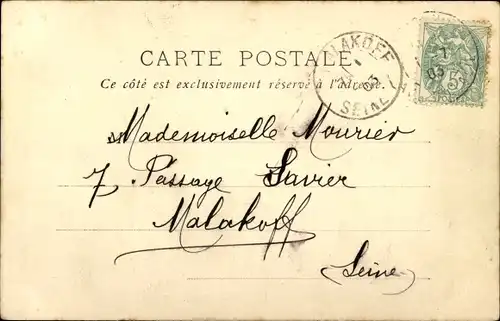 CARTE POSTALE
Ce côté est exclusivement réservé à l'adresse.
MALAKOFF
03
SEINE
03
5c
Mademoiselle Mourier
7, Passage Larier
Malakoff
Seine